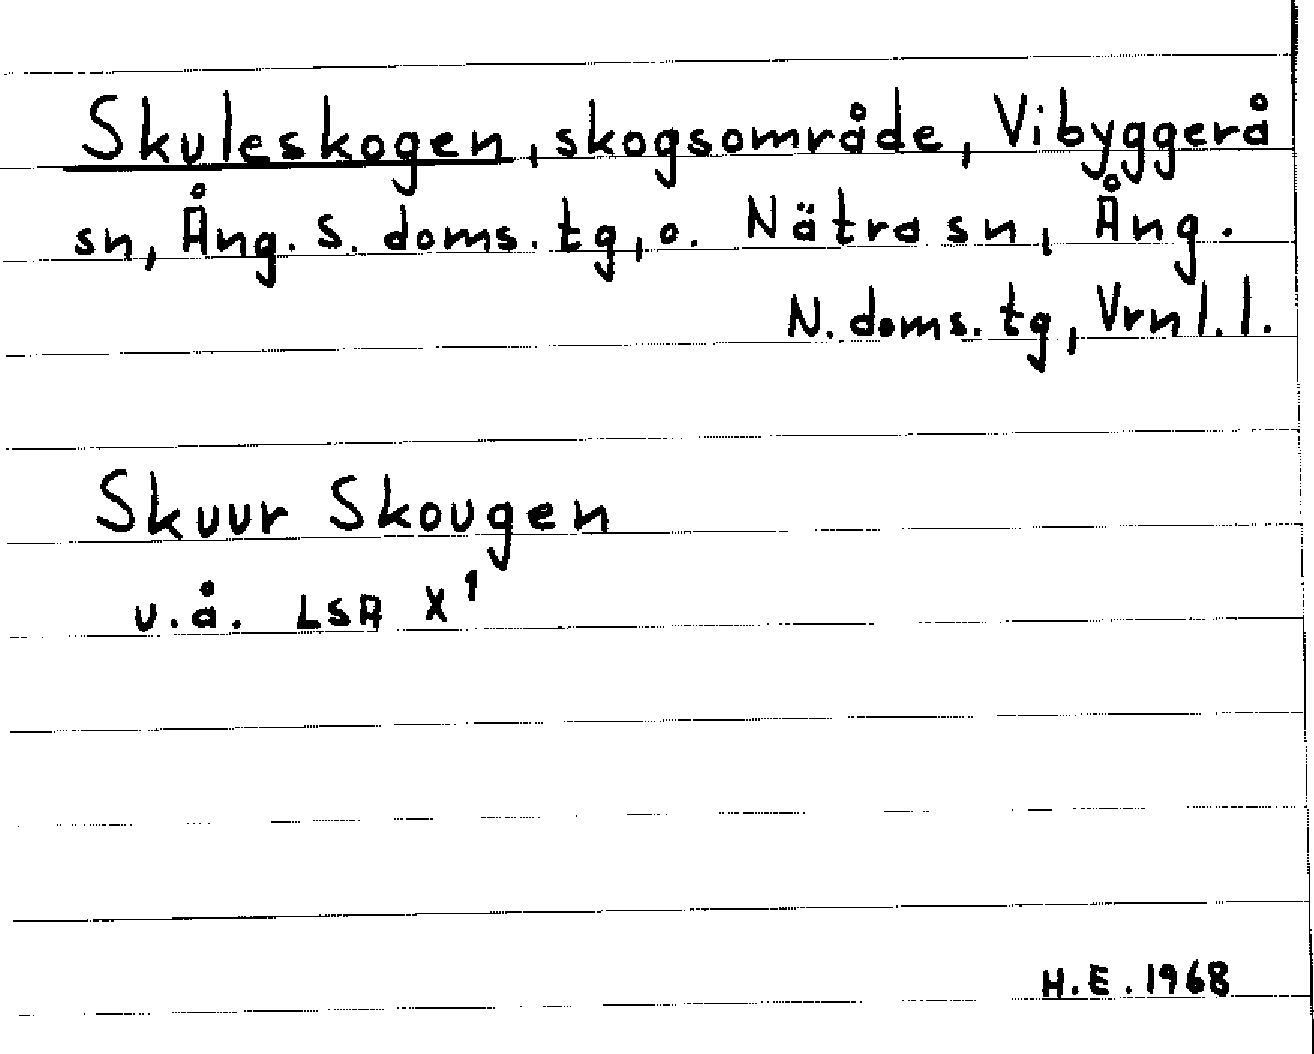 Skuleskogen, skogsområde, Vibyggerå
sn, Ång. S. doms. tg, o. Nätra sn, Ång.
N. doms. tg, Vrnl. l.
Skuur Skougen
u.å. LSA X¹
H.E. 1968